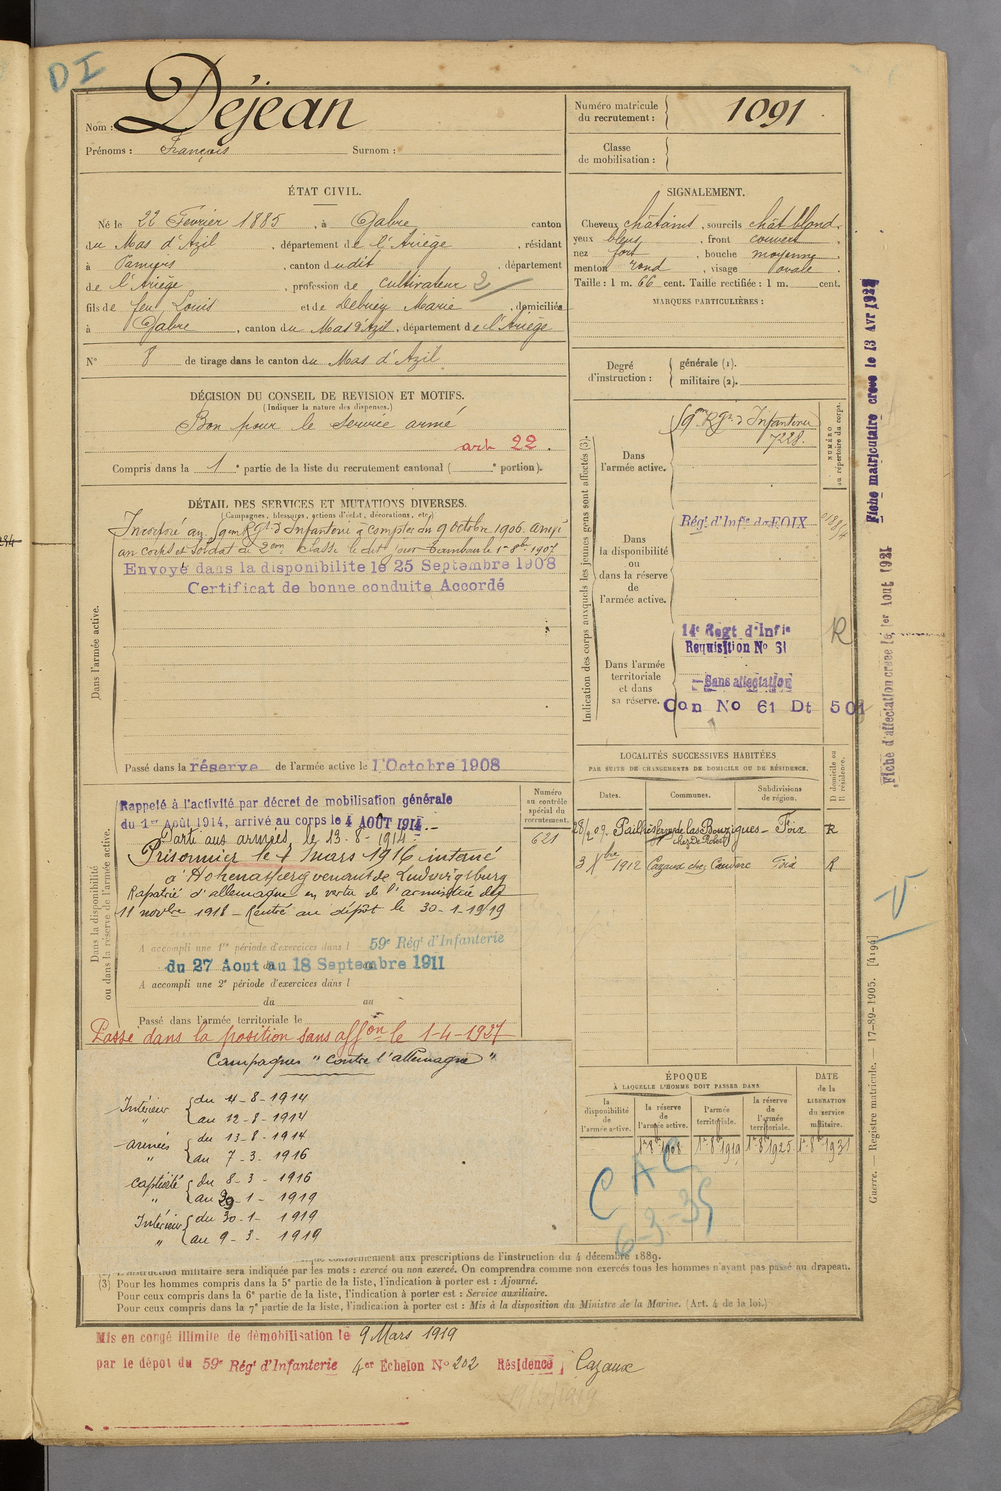 DI
Nom : Déjean
Prénoms : François Surnom :
Numéro matricule du recrutement : 1091
Classe de mobilisation :
ÉTAT CIVIL.
Né le 22 Fevrier 1885, à Gabre canton
du Mas d'Azil, département de l'Ariège, résidant
à Pamiers, canton dudit, département
de l'Ariège, profession de cultivateur 2
fils de feu Louis et de Marie, domiciliés
à Gabre, canton du Mas d'Azil, département de l'Ariège
N° 8 de tirage dans le canton du Mas d'Azil
SIGNALEMENT.
Cheveux châtains, sourcils chât blond
yeux bleus, front couvert
nez fort, bouche moyenne
menton rond, visage ovale
Taille : 1 m. 66 cent. Taille rectifiée : 1 m. cent.
MARQUES PARTICULIÈRES :
Degré d'instruction : générale (1). militaire (2).
DÉCISION DU CONSEIL DE REVISION ET MOTIFS.
(Indiquer la nature des dispenses.)
Bon pour le service armé
art 22.
Compris dans la 1e partie de la liste du recrutement cantonal ( e portion).
DÉTAIL DES SERVICES ET MUTATIONS DIVERSES.
(Campagnes, blessures, actions d'éclat, décorations, etc.)
Incorporé au 59me Rgt d'Infanterie à compter du 9 octobre 1906. arrivé
au corps et soldat de 2eme classe le dit jour Tambour le 1er 8bre 1907
Envoyé dans la disponibilite le 25 Septembre 1908
Certificat de bonne conduite Accordé
Dans l'armée active.
Passé dans la réserve de l'armée active le 1 Octobre 1908
Indication des corps auxquels les jeunes gens sont affectés (3).
NUMÉRO au répertoire du corps.
Dans l'armée active.
59me Rgt d'Infanterie
7228.
Dans la disponibilité ou dans la réserve de l'armée active.
Régt d'Infie de FOIX
Dans l'armée territoriale et dans sa réserve.
14e Regt d'Infie
Requisition No 61
R
Sans affectation
Can No 61 Dt 501
Fiche matriculaire creee le 13 Avr 1922
Fiche d'affectation creee le, 1er Aout 1921
LOCALITÉS SUCCESSIVES HABITÉES
PAR SUITE DE CHANGEMENTS DE DOMICILE OU DE RÉSIDENCE.
Dates. Communes. Subdivisions de région. D domicile ou R résidence.
Pailhès Foix R
1912 Cazaux chez Foix R
Dans la disponibilité ou dans la réserve de l'armée active.
Numéro au contrôle spécial du recrutement.
621
Rappelé à l'activité par décret de mobilisation générale
du 1er Août 1914, arrivé au corps le 4 AOÛT 1914.
Parti aux armées le 13-8-1914
Prisonnier le 7 mars 1916 interné
à Hohenasperg venant de Ludwigsburg
Rapatrié d'allemagne en vertu de l'armistice du
11 novbre 1918 - Rentré au dépôt le 30-1-1919
A accompli une 1re période d'exercices dans l 59e Régt d'Infanterie
du 27 Aout au 18 Septembre 1911
A accompli une 2e période d'exercices dans l
du au
Passé dans l'armée territoriale le
Passé dans la position sans affon le 1-4-1927
Campagnes "contre l'allemagne"
Intérieur du 4-8-1914
" au 12-8-1914
armées du 13-8-1914
" au 7-3-1916
captivité du 8-3-1916
" au 29-1-1919
Intérieur du 30-1-1919
" au 9-3-1919
ÉPOQUE
À LAQUELLE L'HOMME DOIT PASSER DANS
la disponibilité de l'armée active. la réserve de l'armée active. l'armée territoriale. la réserve de l'armée territoriale. DATE de la LIBÉRATION du service militaire.
1er 8b 1908 1er 8b 1919 1er 8b 1925 1er 8b 1931
CAC
6-3-35
conformément aux prescriptions de l'instruction du 4 décembre 1889.
L'instruction militaire sera indiquée par les mots : exercé ou non exercé. On comprendra comme non exercés tous les hommes n'ayant pas passé au drapeau.
(3) Pour les hommes compris dans la 5e partie de la liste, l'indication à porter est : Ajourné.
Pour ceux compris dans la 6e partie de la liste, l'indication à porter est : Service auxiliaire.
Pour ceux compris dans la 7e partie de la liste, l'indication à porter est : Mis à la disposition du Ministre de la Marine. (Art. 4 de la loi.)
Guerre. — Registre matricule. — 17-89-1905. [4194]
Mis en congé illimite de démobilisation le 9 Mars 1919
par le dépot du 59e Régt d'Infanterie 4er Echelon No 202 Résidence Cazaux